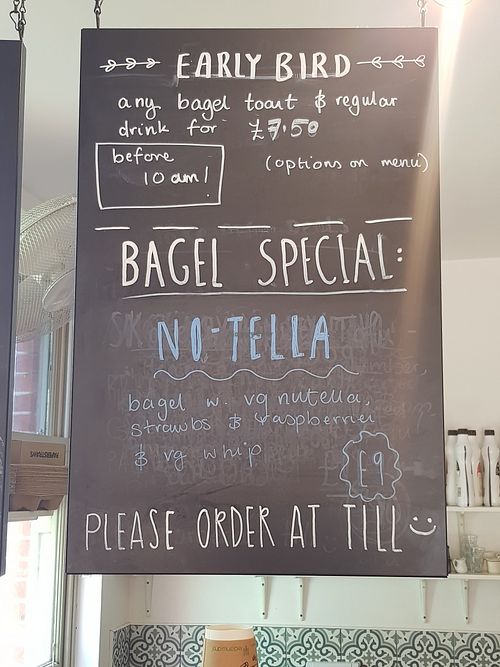 EARLY BIRD
any bagel toast & regular
drink for £7.50
before (options on menu)
10 am!
BAGEL SPECIAL:
NO-TELLA
bagel w. vg nutella,
strawbs & raspberries
& vg whip
£9
PLEASE ORDER AT TILL